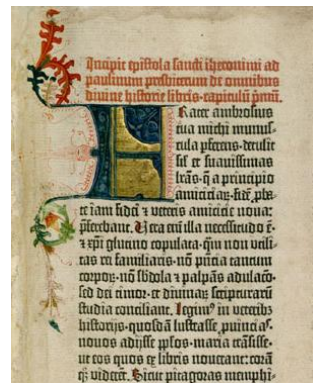 Incipit epistola sancti iheronimi ad
paulinum presbiterum de omnibus
divine historie libris·capitulū pmū.
Frater ambrosius
tua michi munus-
cula pferens·detulit
sil' et suavissimas
lrās·q̄ a principio
amiciciaꝝ·fidē pba-
te iam fidei ⁊ veteris amicicie noua:
pferebant. Vera enī illa necessitudo ē·
⁊ xpi glutino copulata·qm̄ non vtili-
tas rei familiaris·nō pn̄cia tantum
corpoꝝ·nō sbdola ⁊ palpās adulacō·
sed dei timor·et diuinaꝝ scripturarū
studia conciliant. Legimꝰ in veteribꝫ
historijs·quosdā lustrasse puīcias·
nouos adijsse pplos·maria trāsisse·
ut eos quos ex libris nouerant: corā
qꝫ viderēt. Sicut pitagoras memphi-